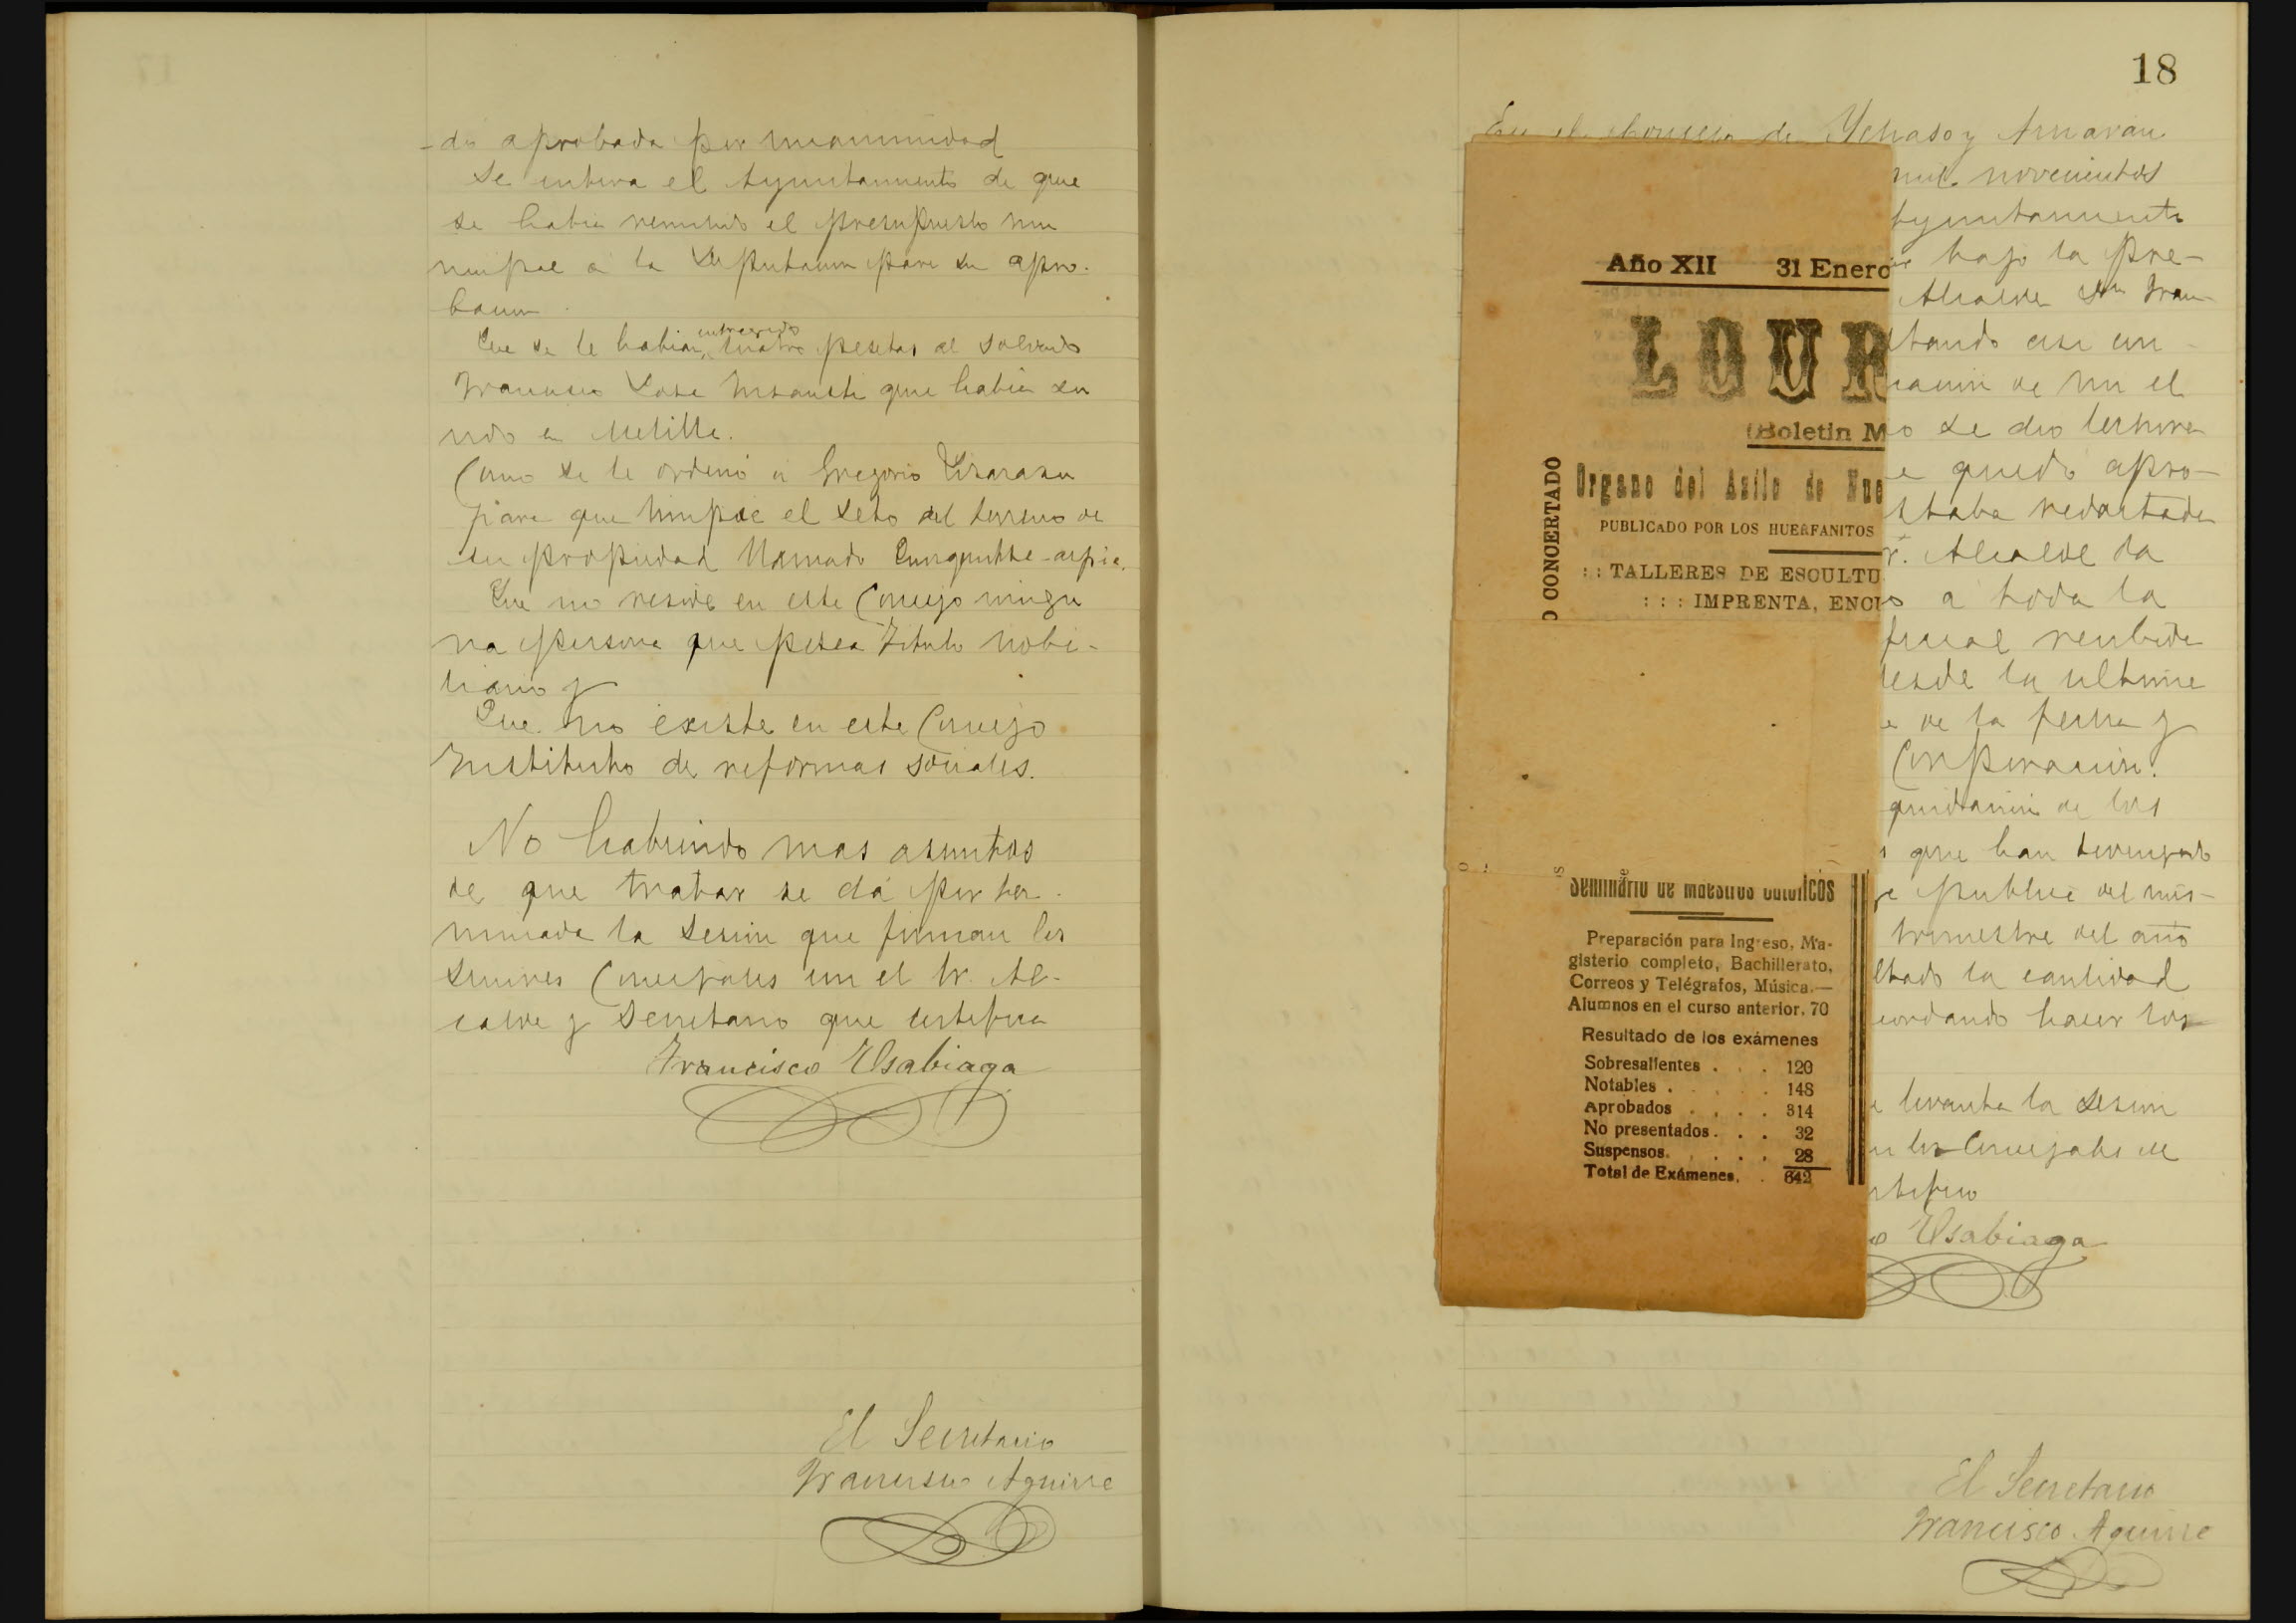 -do aprobada por unanimidad
Se entera el Ayuntamiento de que
se habia remitido el presupuesto mu
nicipal a la Diputacion para su apro-
bacion
Que se le habian entregado cuatro pesetas al soldado
Francisco Jose que habia ser
vido en Melilla.
Como se le ordenó a Gregorio
para que limpie el seto del terreno de
su propiedad llamado
Que no reside en este Concejo ningu
na persona que posea Titulo nobi-
liario y
Que no existe en este Concejo
Instituto de reformas sociales.
No habiendo mas asuntos
de que tratar se dá por ter-
minada la sesion que firman los
señores Concejales con el Sr. Al-
calde y Secretario que certifica
Francisco Usabiaga
El Secretario
Francisco Aguirre
18
En el Concejo de Ychaso y Arriaran
mil novecientos
Ayuntamiento
bajo la pre-
Alcalde Don Fran-
ctando asi con
racion de mi el
io se dio lectura
e quedó apro-
staba redactada
r. Alcalde da
s a toda la
ficial recibida
desde la ultima
a de la fecha y
Corporacion.
quidacion de los
s que han devengado
publica del mis-
trimestre del año
ltado la cantidad
cordando hacer los
e levanta la sesion
n los Concejales de
rtifico
o Usabiaga
El Secretario
Francisco Aguirre
Año XII 31 Enero
LOUR
(Boletin M
Organo del Asilo de Nue
PUBLICADO POR LOS HUERFANITOS
: : TALLERES DE ESCULTU
: : : IMPRENTA, ENCU
O CONCERTADO
Seminario de maestros católicos
Preparación para Ingreso, Ma-
gisterio completo, Bachillerato,
Correos y Telégrafos, Música.—
Alumnos en el curso anterior. 70
Resultado de los exámenes
Sobresalientes . . . 120
Notables . . . . . 148
Aprobados . . . . 314
No presentados . . . 32
Suspensos. . . . . 28
Total de Exámenes. . 642